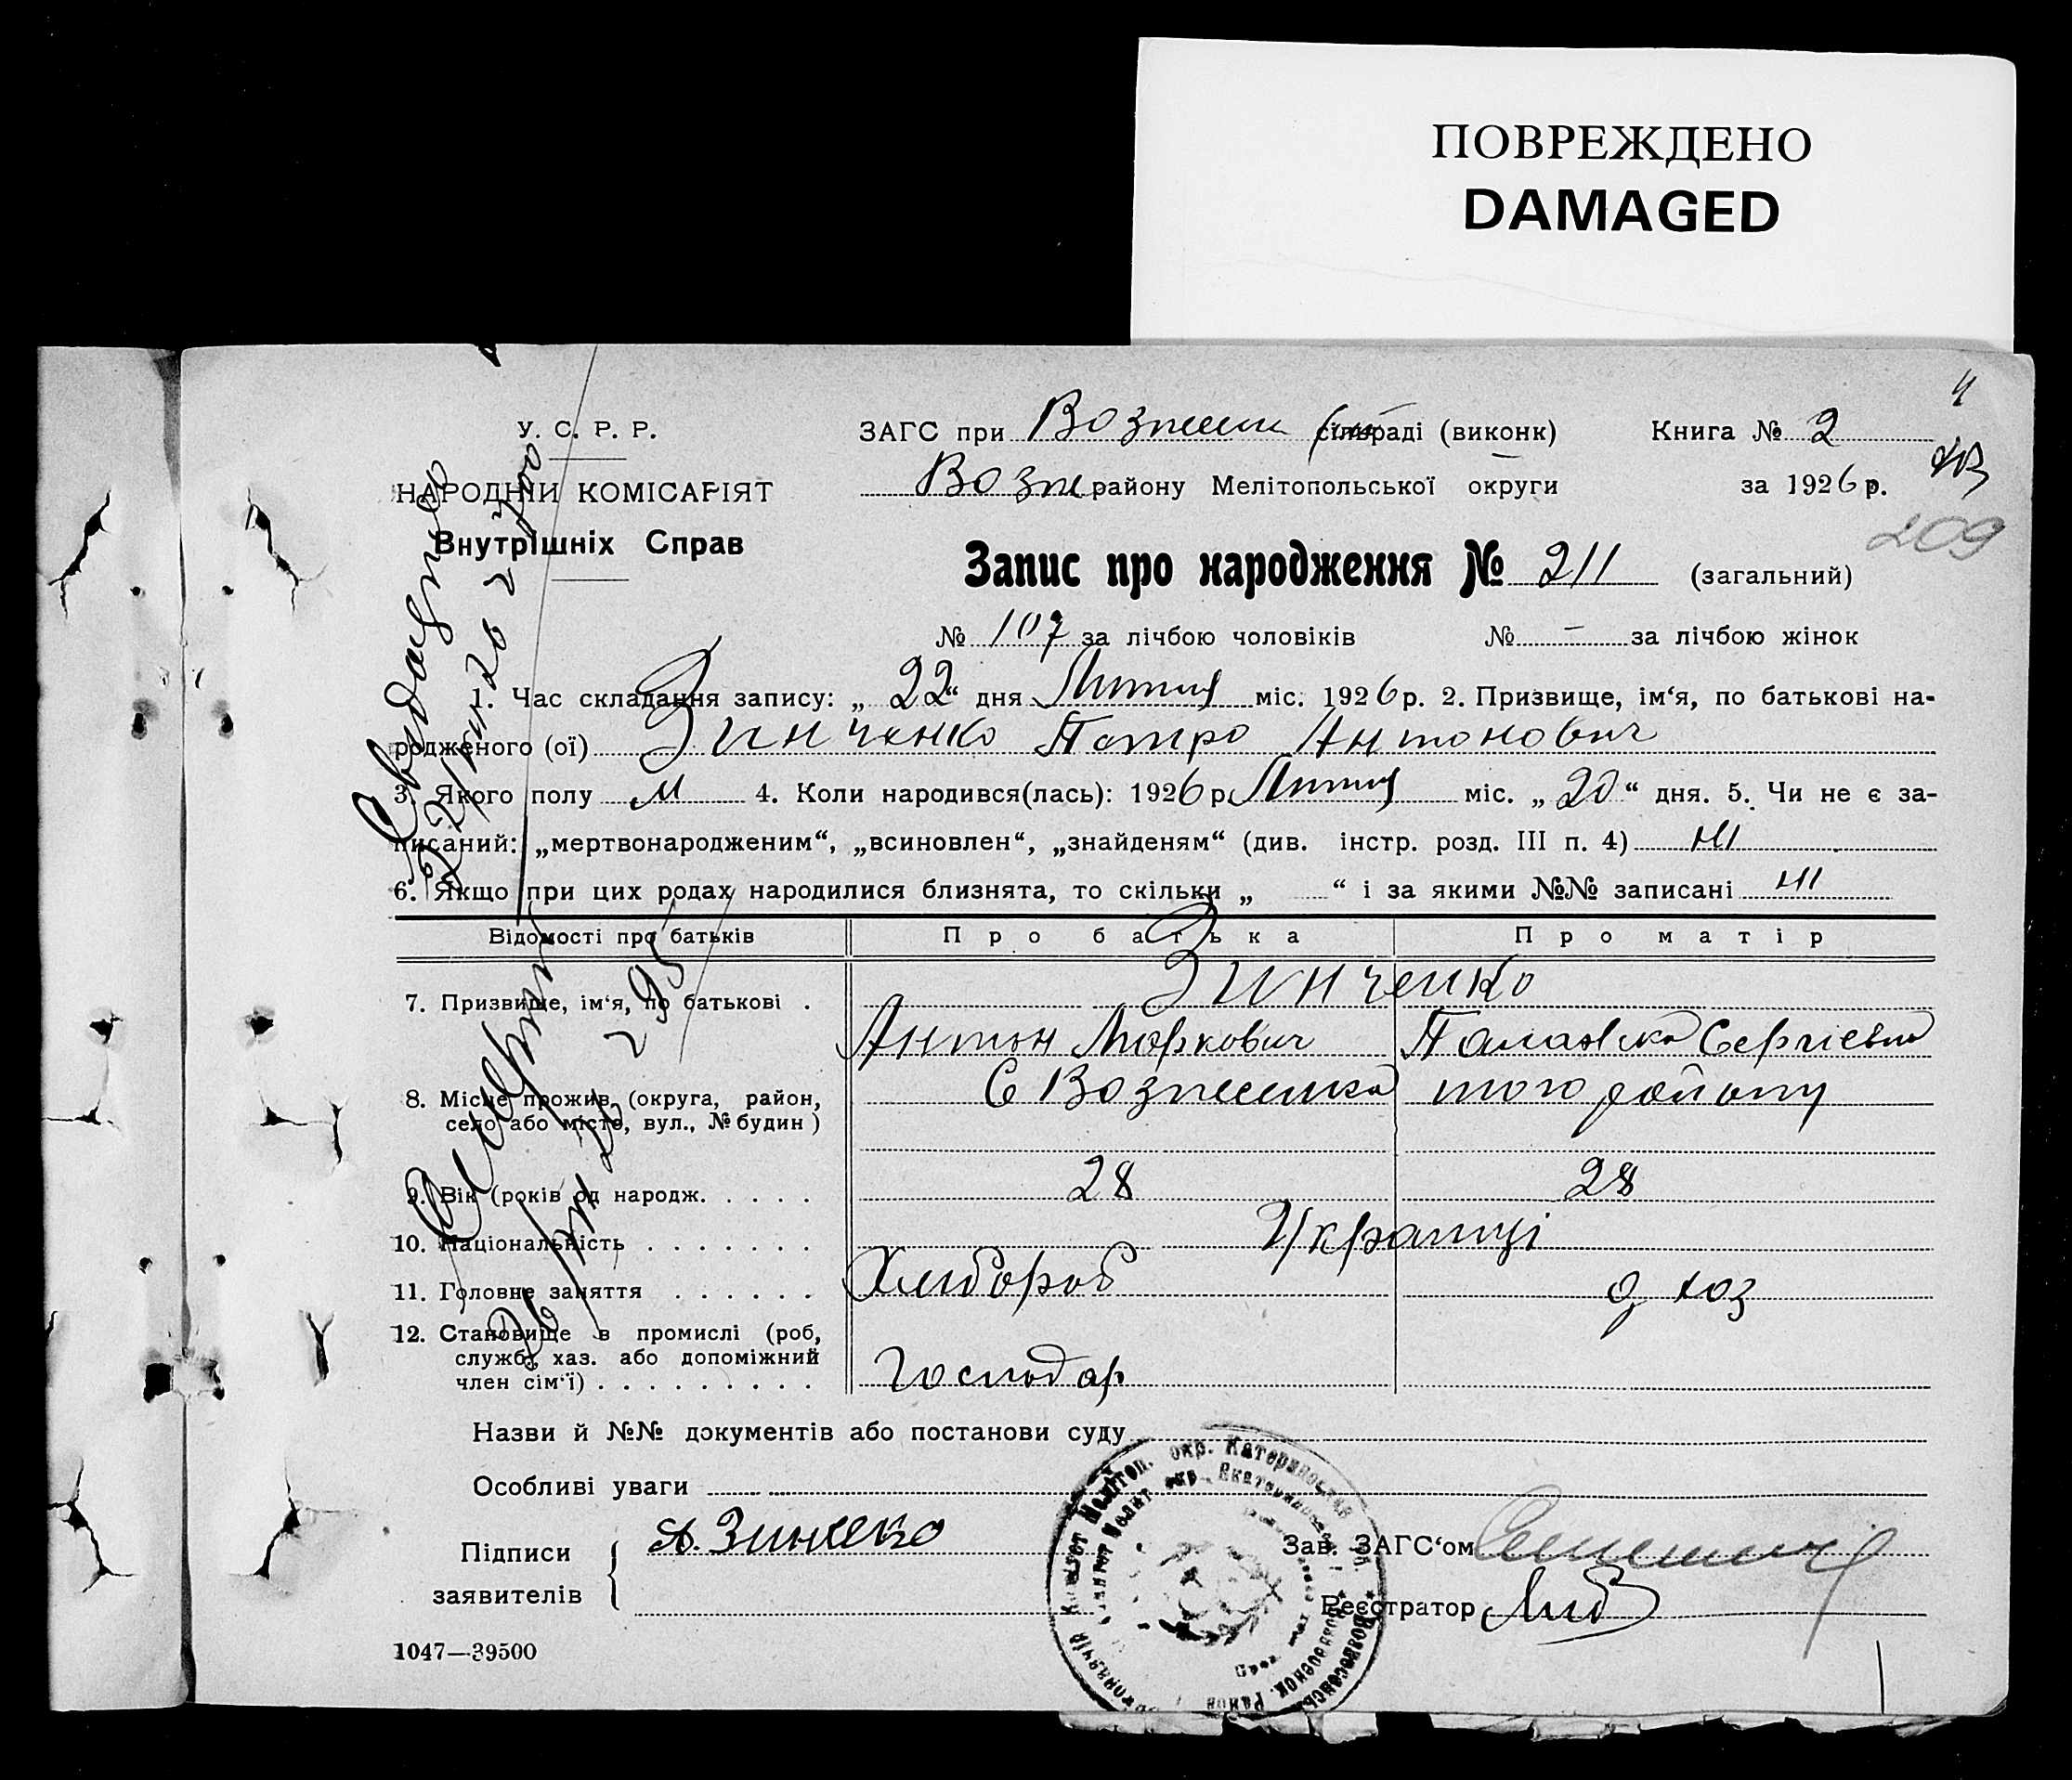 ПОВРЕЖДЕНО
DAMAGED
4
У. С. Р. Р.
НАРОДНІЙ КОМІСАРІЯТ
Внутрішніх Справ
ЗАГС при Вознесен сільраді (виконк)
Книга № 2
Возне району Мелітопольської округи
за 1926 р.
209
Запис про народження № 211 (загальний)
№ 107 за лічбою чоловіків № – за лічбою жінок
1. Час складання запису: „22“ дня Липня міс. 1926 р. 2. Призвище, ім‘я, по батькові на-
родженого (ої) Зинченко Петро Антонович
3. Якого полу М 4. Коли народився(лась): 1926 р. Липня міс. „20“ дня. 5. Чи не є за-
писаний: „мертвонародженим“, „всиновлен“, „знайденям“ (див. інстр. розд. III п. 4) ні
6. Якщо при цих родах народилися близнята, то скільки „ “ і за якими №№ записані ні
Відомості про батьків Про батька Про матір
7. Призвище, ім‘я, по батькові . Зинченко
Антон Маркович Палажка Сергієвна
8. Місце прожив. (округа, район, С Вознесенка того району
село або місто, вул., № будин)
9. Вік (років од народж. . . . . 28 28
10. Національність . . . . . . . Українці
11. Головне заняття . . . . . . Хлібороб д хоз
12. Становище в промислі (роб,
служб, хаз. або допоміжний
член сім‘ї) . . . . . . . . . Господар
Назви й №№ документів або постанови суду
Особливі уваги
Підписи
заявителів
А. Зинченко
Зав. ЗАГС‘ом
Реєстратор
1047—39500